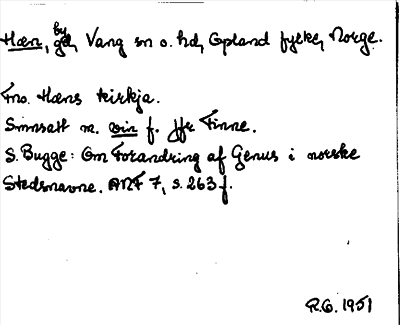 Hæn, by gd, Vang sn o. hd, Opland fylke, Norge.
Fno. Hæns kirkja.
Smnsatt m. vin f. Jfr Finne.
S. Bugge: Om Forandring af Genus i norske
Stedsnavne. ANF 7, s. 263 f.
R.G. 1951